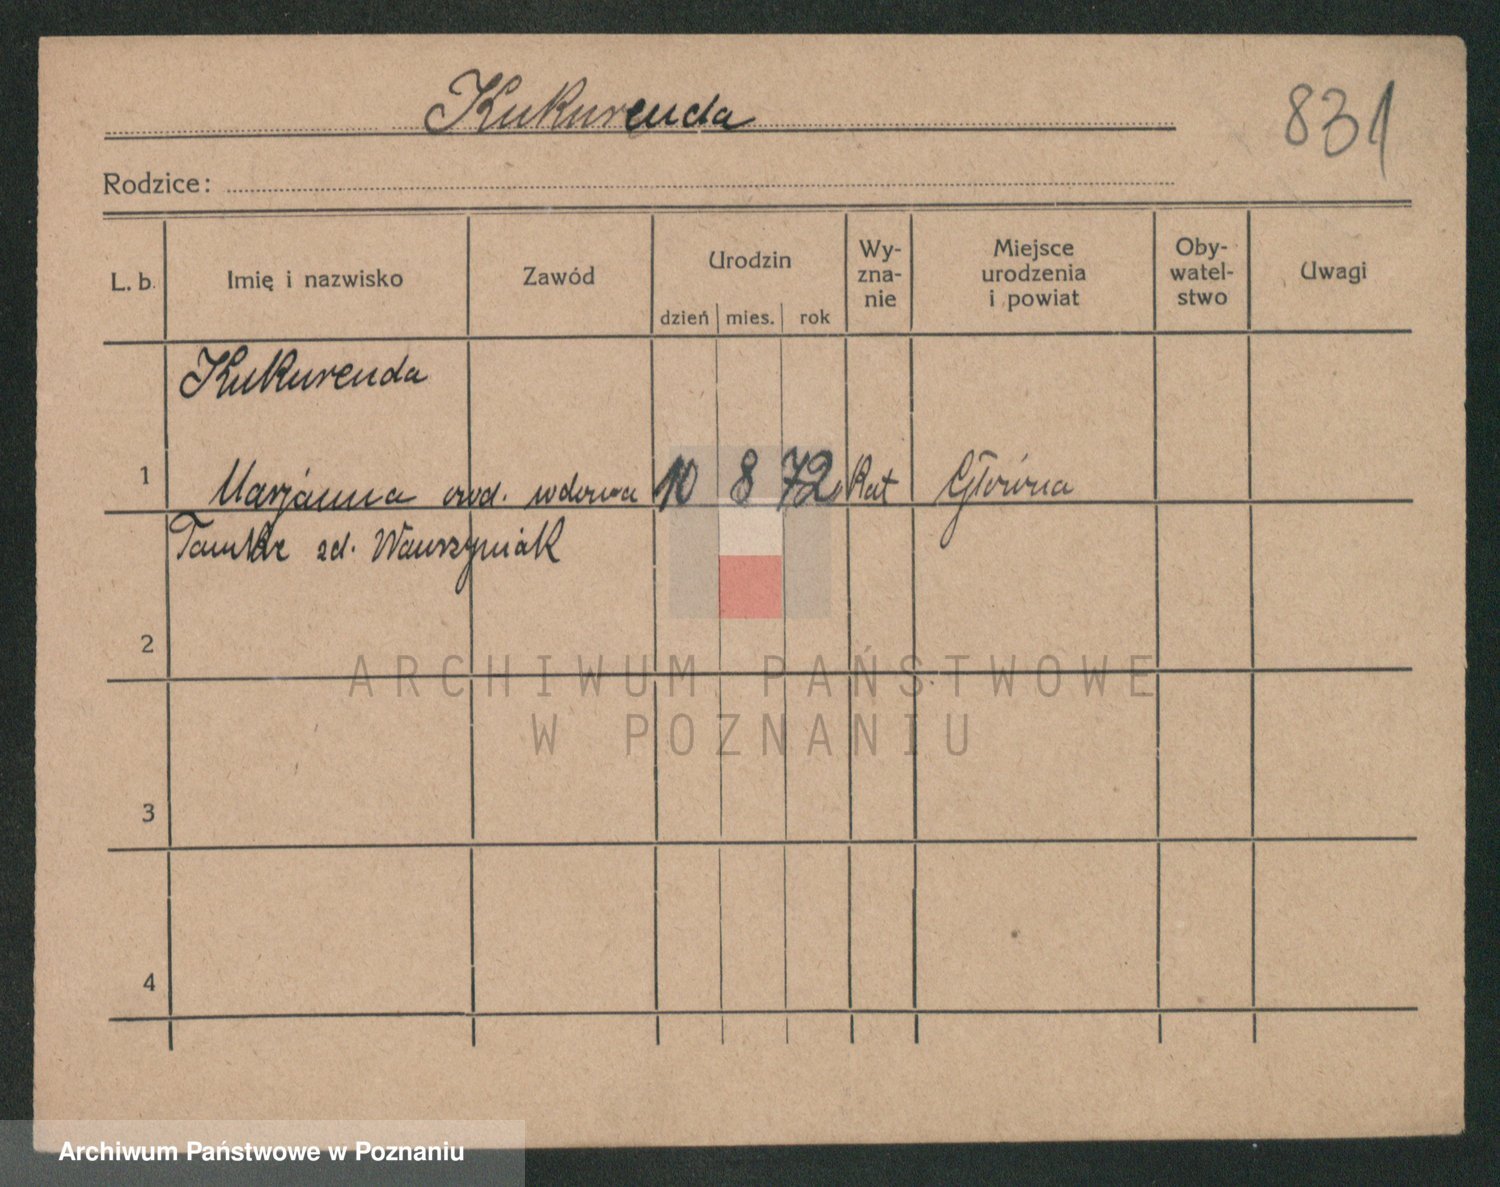 Kukurenda
831
Rodzice:
L. b. Imię i nazwisko Zawód Urodzin dzień mies. rok Wy-zna-nie Miejsce urodzenia i powiat Oby-watel-stwo Uwagi
Kukurenda
1 Marjanna owd. wdowa 10 8 72 Kat Główna
Tamke zd. Wawrzyniak
2
3
4
ARCHIWUM PAŃSTWOWE
W POZNANIU
Archiwum Państwowe w Poznaniu